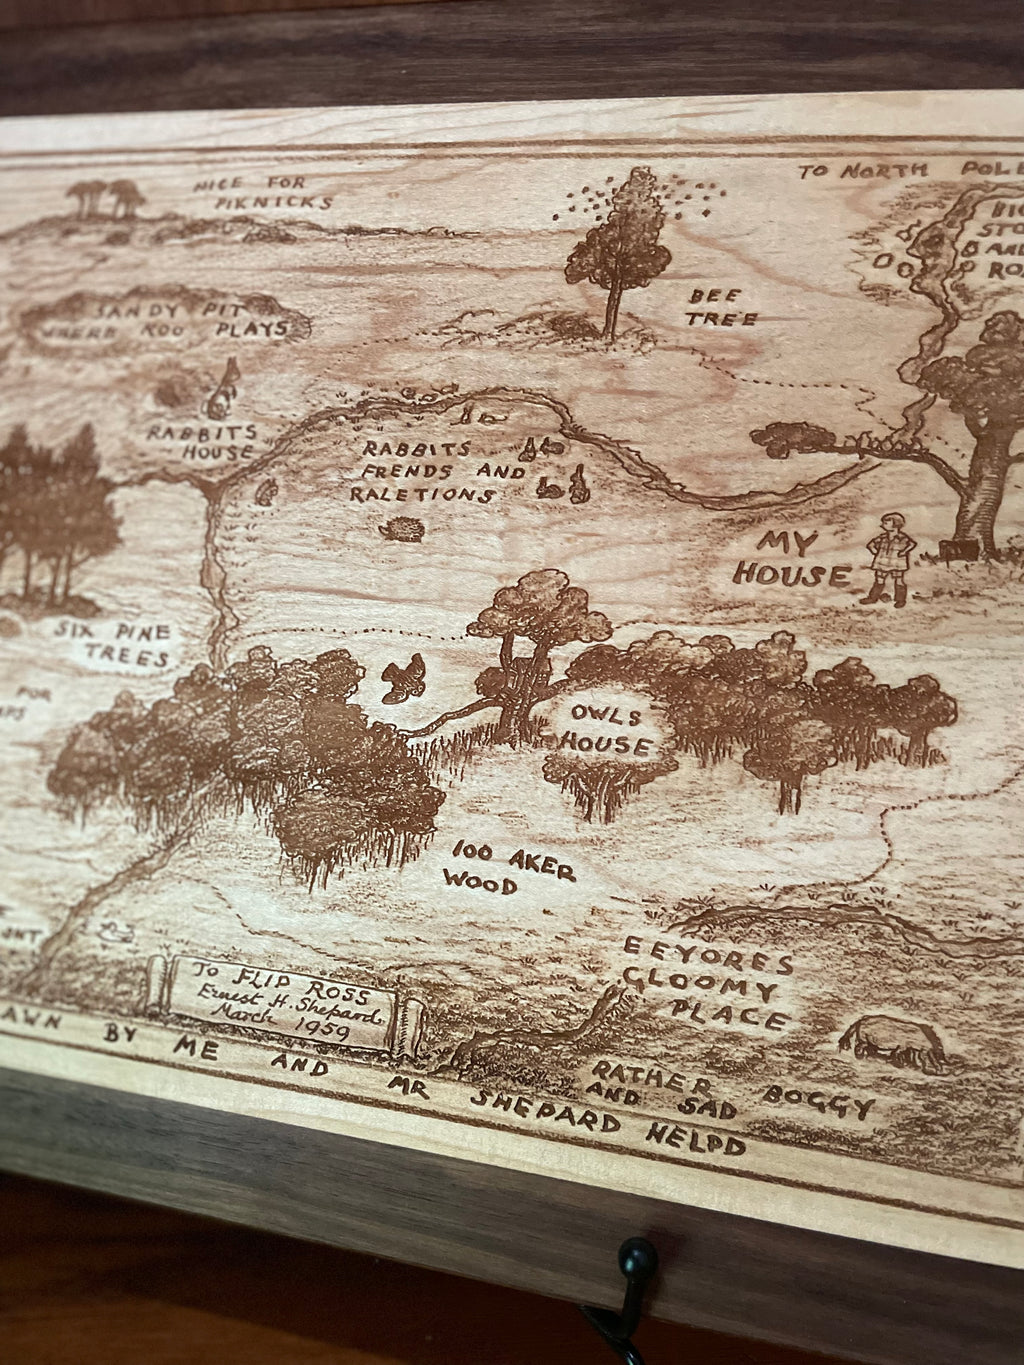 NICE FOR
PIKNICKS
TO NORTH POLE
BIG
STO
AND
RO
BEE
TREE
SANDY PIT
WHERE ROO PLAYS
RABBITS
HOUSE
RABBITS
FRENDS AND
RALETIONS
MY
HOUSE
SIX PINE
TREES
FOR
OWLS
HOUSE
100 AKER
WOOD
EEYORES
GLOOMY
PLACE
TO FLIP ROSS
Ernest H. Shepard
March 1959
RATHER BOGGY
AND SAD
AWN BY ME AND MR SHEPARD HELPD